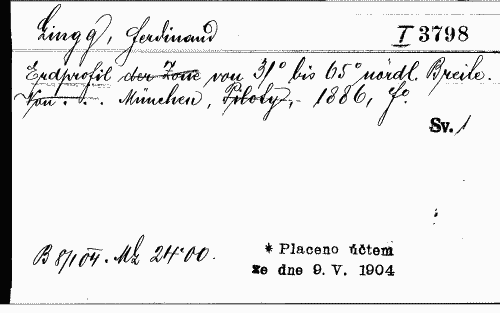 Lingg, Ferdinand
I 3798
Erdprofil der Zone von 31° bis 65° nördl. Breite.
Von . . . München, Piloty, 1886, f°.
Sv. 1
B 8/1 04. Mk 24·00.
* Placeno účtem
ze dne 9. V. 1904